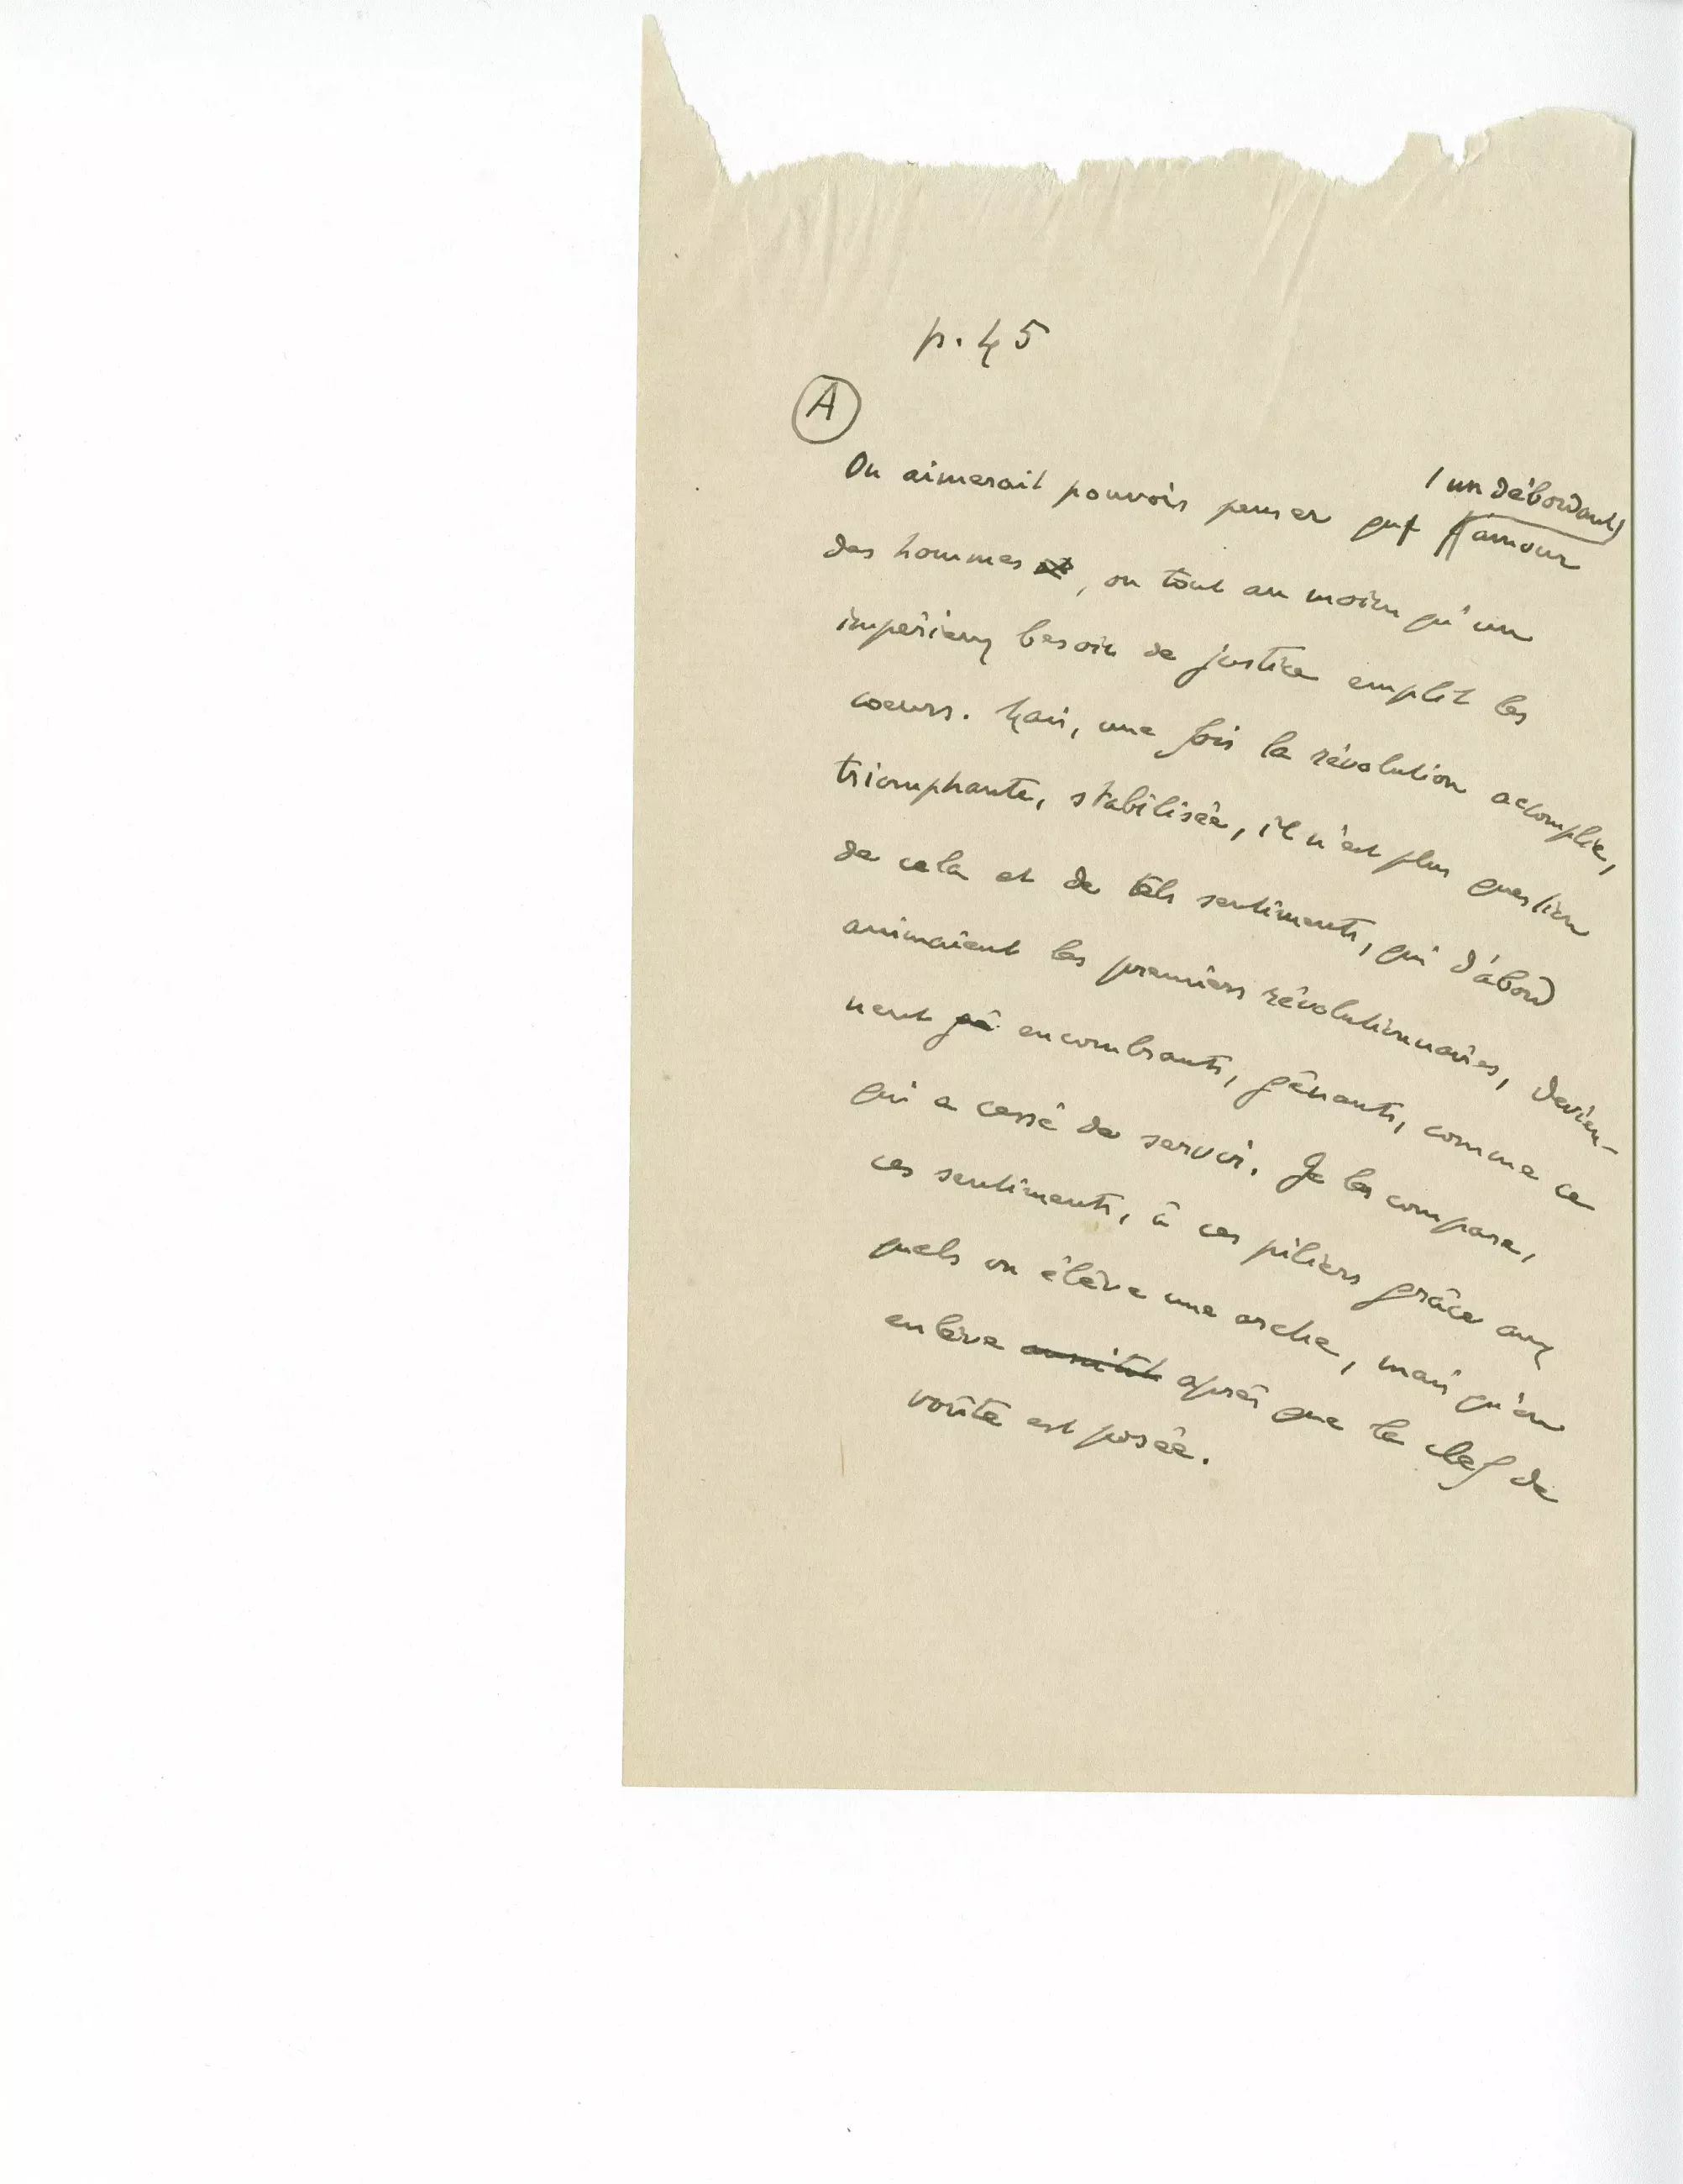 p. 45
A
On aimerait pouvoir penser qu' (un débordant) amour
des hommes, ou tout au moins qu'un
impérieux besoin de justice emplit les
coeurs. Mais, une fois la révolution accomplie,
triomphante, stabilisée, il n'est plus question
de cela et de tels sentiments, qui d'abord
animaient les premiers révolutionnaires, devien-
nent gê encombrants, gênants, comme ce
qui a cessé de servir. Je les compare,
ces sentiments, à ces piliers grâce aux
quels on élève une arche, mais qu'on
enlève aussitôt après que la clef de
voûte est posée.